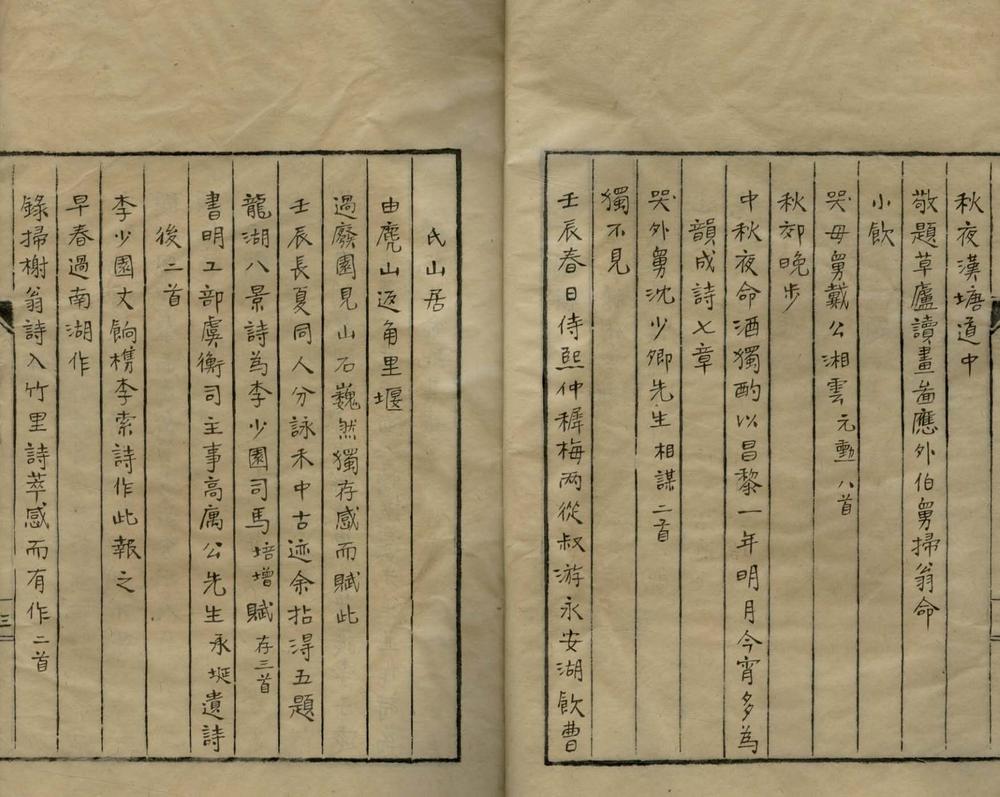 秋夜漢塘道中
敬題草廬讀畫啚應外伯舅掃翁命
小飲
哭母舅戴公湘雲元勳八首
秋郊晚步
中秋夜命酒獨酌以昌黎一年明月今宵多為
韻成詩七章
哭外舅沈少卿先生相謀二首
獨不見
壬辰春日侍熙仲穉梅两從叔游永安湖飲曹
氏山居
由虎山返甪里堰
過廢園見山石巍然獨存感而賦此
壬辰長夏同人分詠禾中古迹余拈得五題
龍湖八景詩為李少園司馬培增賦存三首
書明工部虞衡司主事高厲公先生承埏遺詩
後二首
李少園丈餉檇李索詩作此報之
早春過南湖作
錄掃榭翁詩入竹里詩萃感而有作二首
三